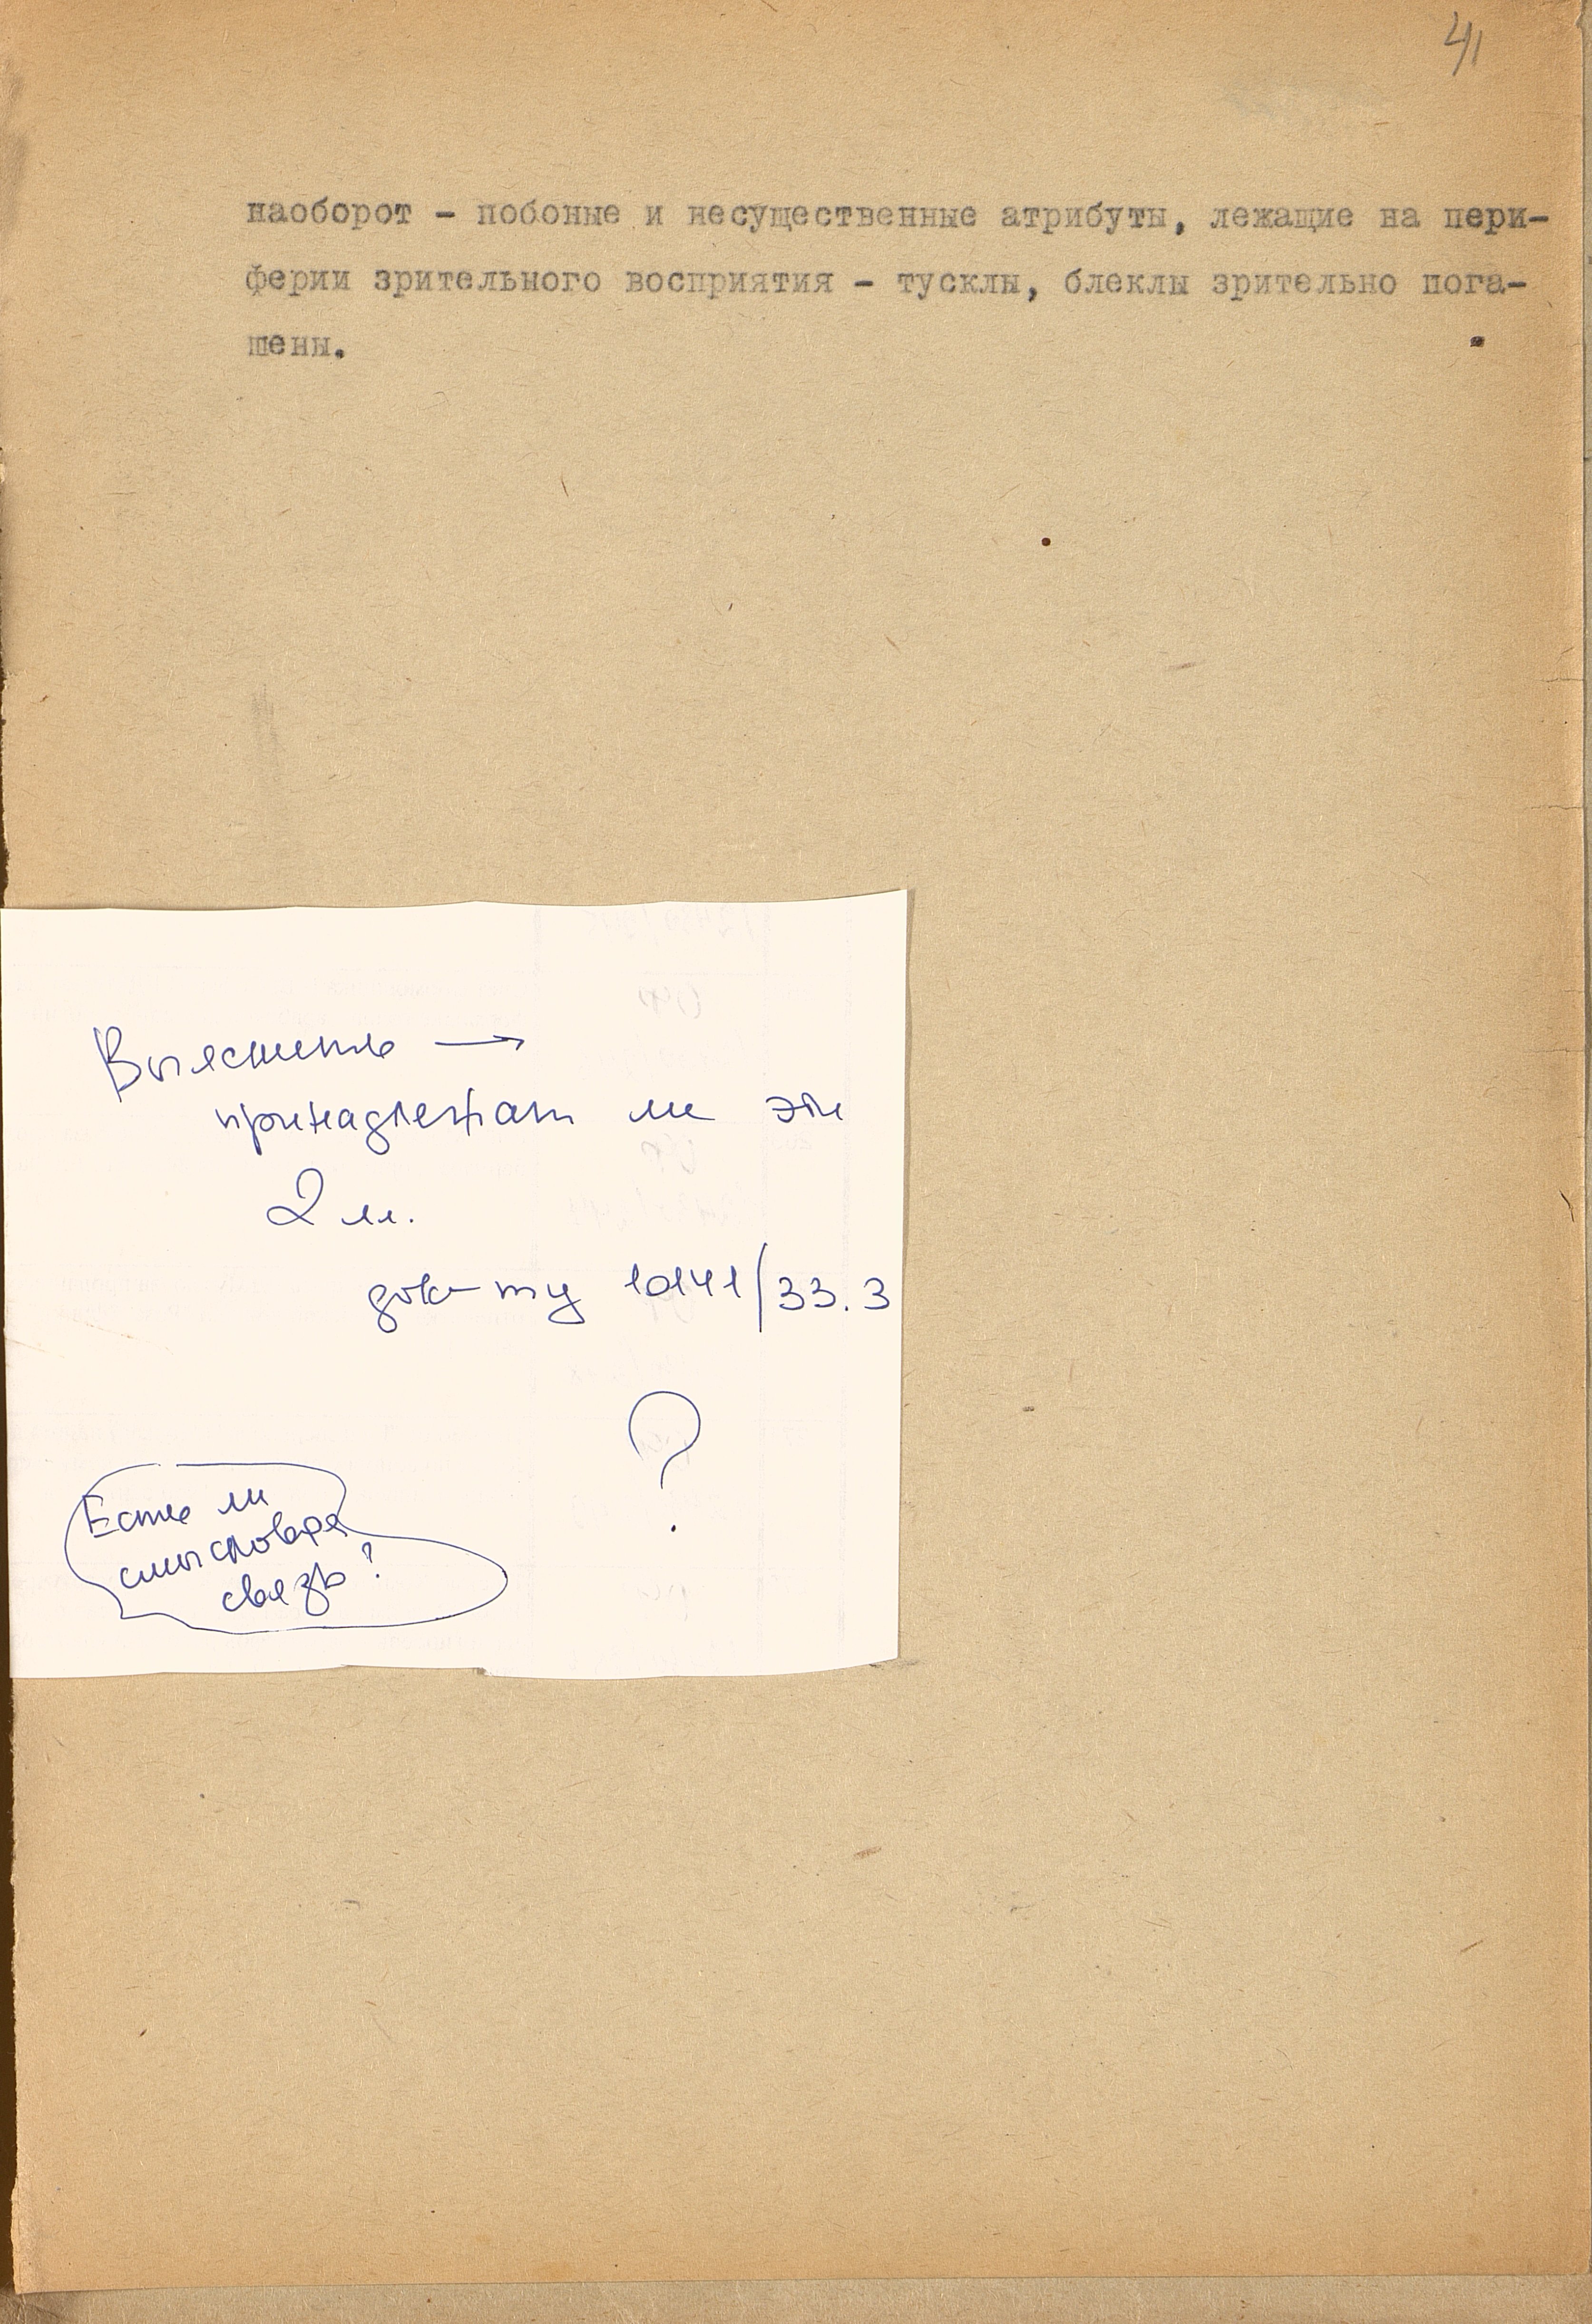 41
наоборот - побоные и несущественные атрибуты, лежащие на пери-
ферии зрительного восприятия - тусклы, блеклы зрительно пога-
шены.
Выяснить →
принадлежат ли эти
2 лл.
док-ту 10141/33.3
?
Есть ли
смысловая
связь?